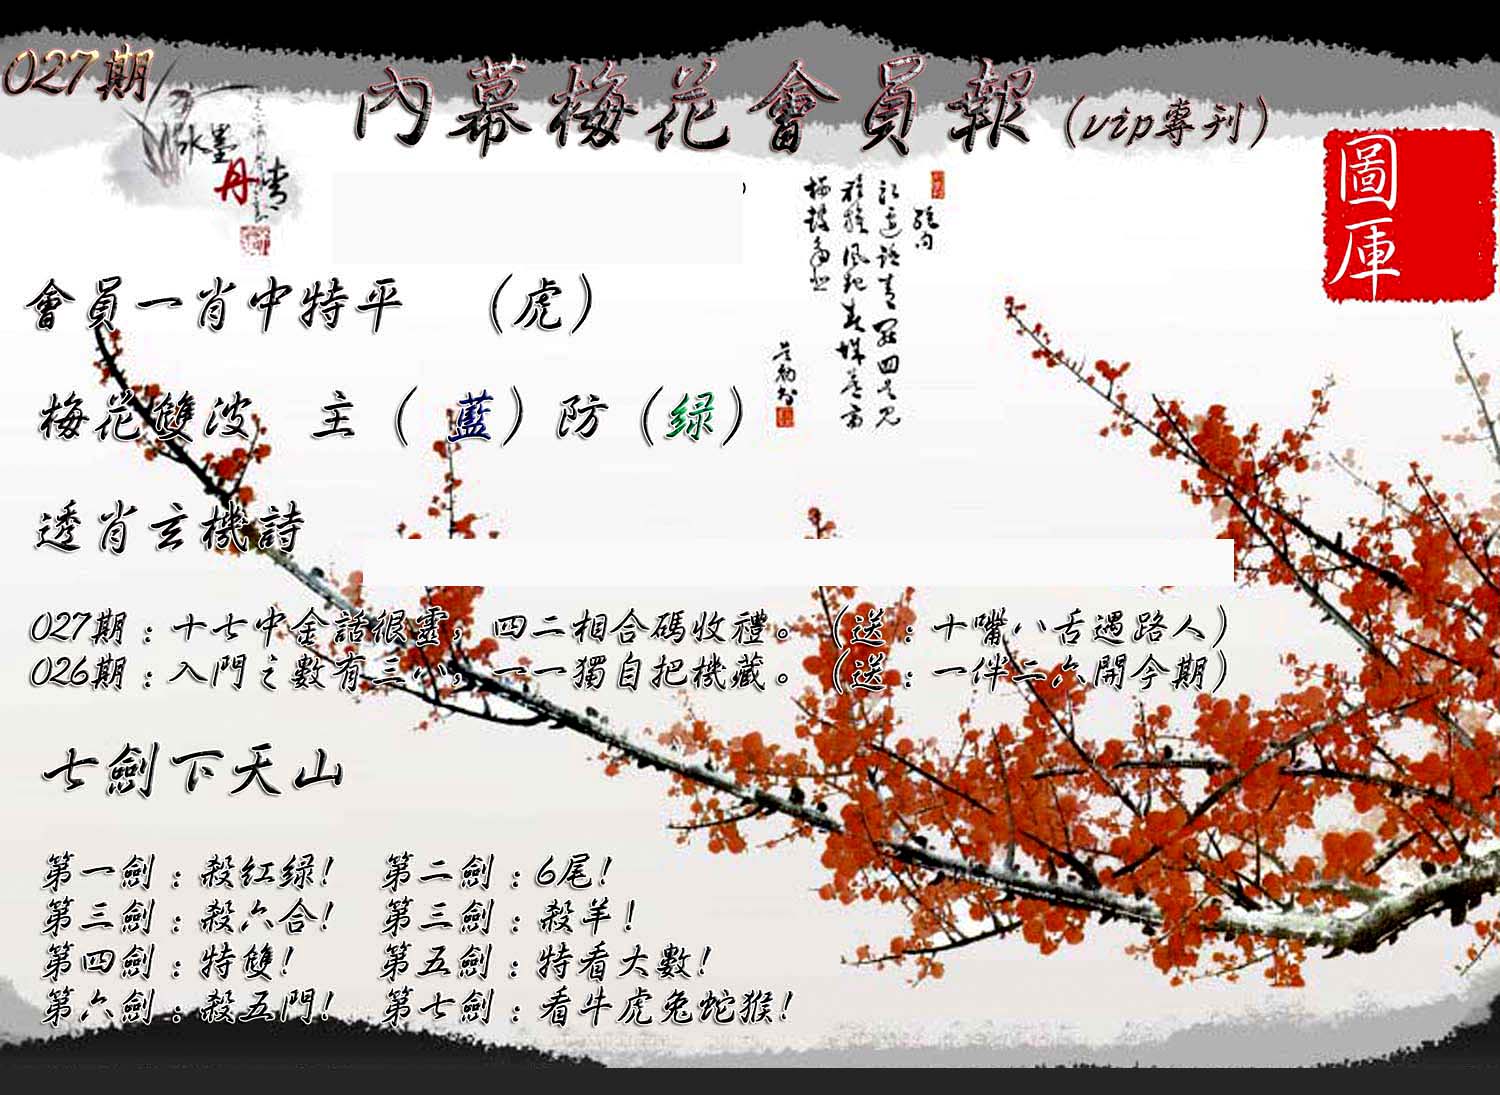 027期
內幕梅花會員報(vip專刊)
水墨
丹青
圖庫
會員一肖中特平 (虎)
梅花雙波 主(藍)防(绿)
透肖玄機詩
027期:十七中金話很靈,四二相合碼收禮。(送:十嘴八舌遇路人)
026期:入門之數有三小,一一獨自把機藏。(送:一伴二六開今期)
七劍下天山
第一劍:殺紅绿! 第二劍:6尾!
第三劍:殺六合! 第三劍:殺羊!
第四劍:特雙! 第五劍:特看大數!
第六劍:殺五門! 第七劍:看牛虎兔蛇猴!